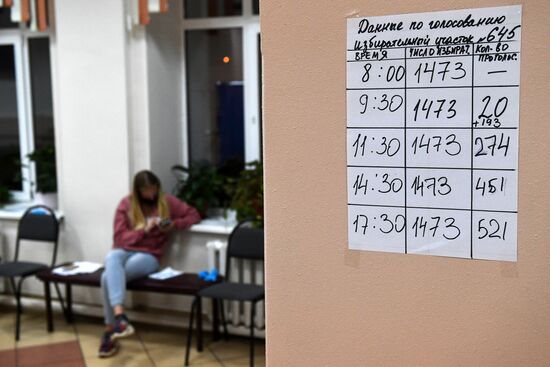 Данные по голосованию
избирательный участок № 645
ВРЕМЯ ЧИСЛО ИЗБИРАТ. КОЛ-ВО ПРОГОЛЬС.
8:00 1473 —
9:30 1473 20 +193
11:30 1473 274
14:30 1473 451
17:30 1473 521